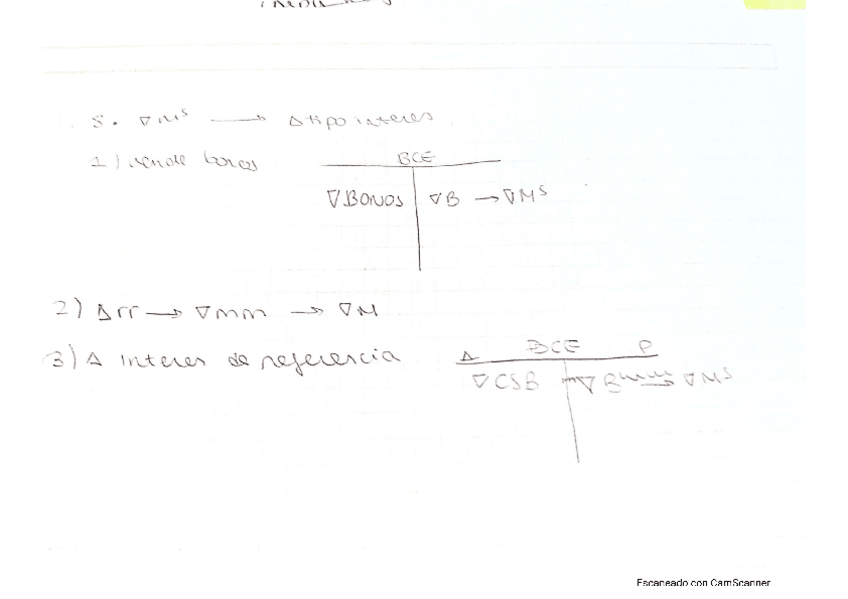 5. ∇ Mˢ → Δ tipo interes
1) vende bonos
BCE
∇ BONOS ∇B → ∇Mˢ
2) Δrr → ∇mm → ∇M
3) Δ interes de referencia
A BCE P
∇CSB ∇B mm → ∇Mˢ
Escaneado con CamScanner